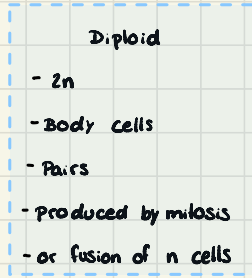 Diploid
- 2n
- Body cells
- Pairs
- produced by mitosis
- or fusion of n cells